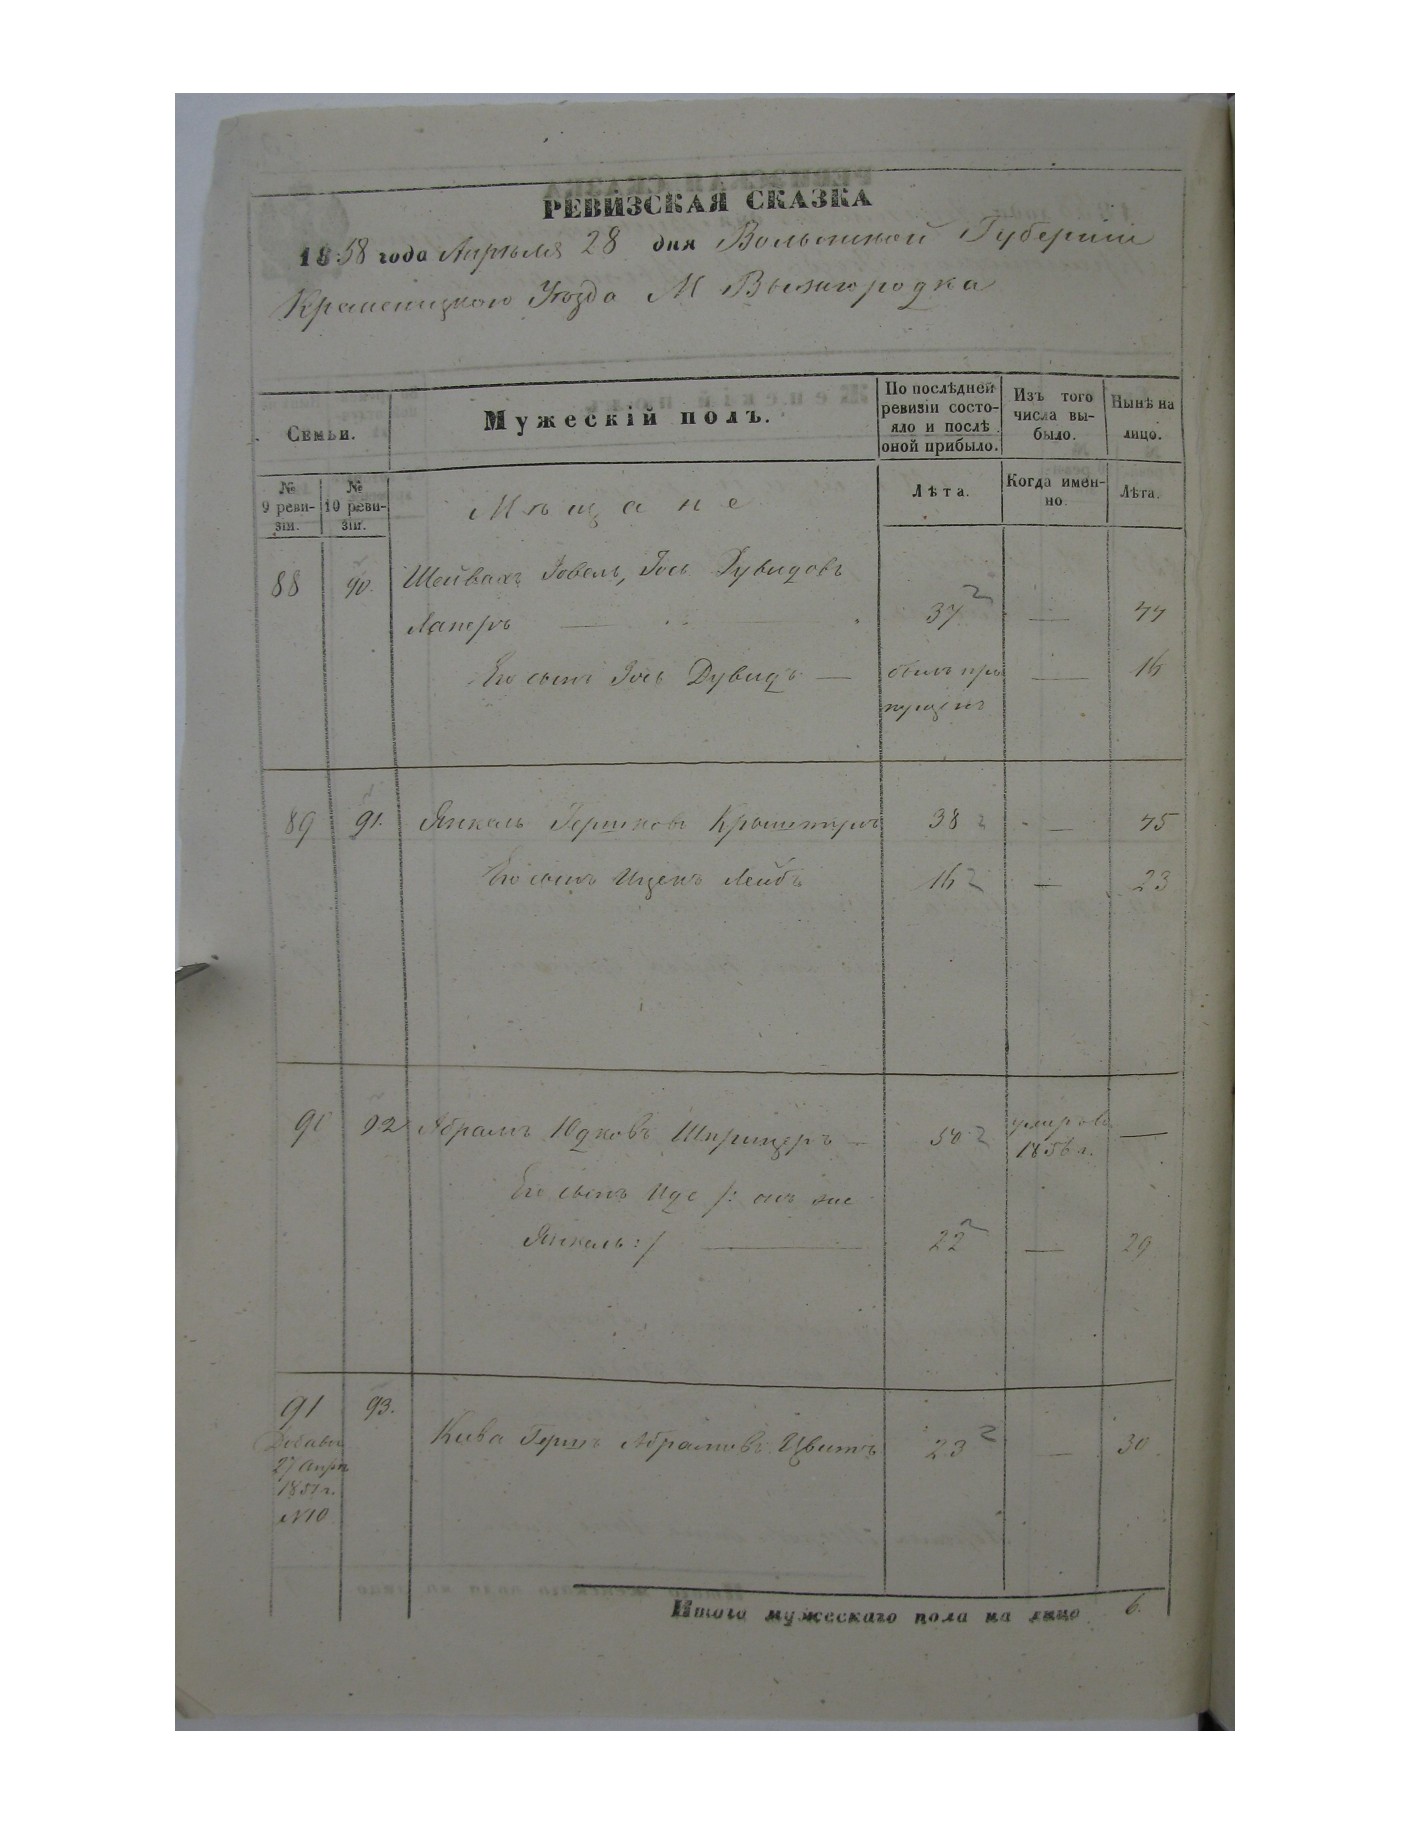 РЕВИЗСКАЯ СКАЗКА
1858 года Апрѣля 28 дня Волынской Губерніи
Кременецкого Уѣзда М Вышгородка
Семьи.
Мужескій полъ.
По послѣдней ревизіи состояло и послѣ оной прибыло.
Изъ того числа выбыло.
Нынѣ на лицо.
№ 9 ревизіи.
№ 10 ревизіи.
Мѣщане
Лѣта.
Когда именно.
Лѣта.
88 90. Шейвахъ Іовель, Іось Дувидовъ
Лаперъ 37 — 44
Его сынъ Іось Дувидъ — былъ пропущенъ — 16
89 91. Янкель Гершковъ 38 — 45
Его сынъ Ицекъ Лейбъ 16 — 23
91 92 Абрамъ Юдковъ Шприцеръ — 50 умеръ въ 1856 г. —
Его сынъ Иде /: онъ же
Янкель :/ 22 — 29
91 93. Кива Гершъ Абрамовъ Цвикъ 23 — 30
27 Апрѣ
1851 г.
№10
Итого мужескаго пола на лицо 6.